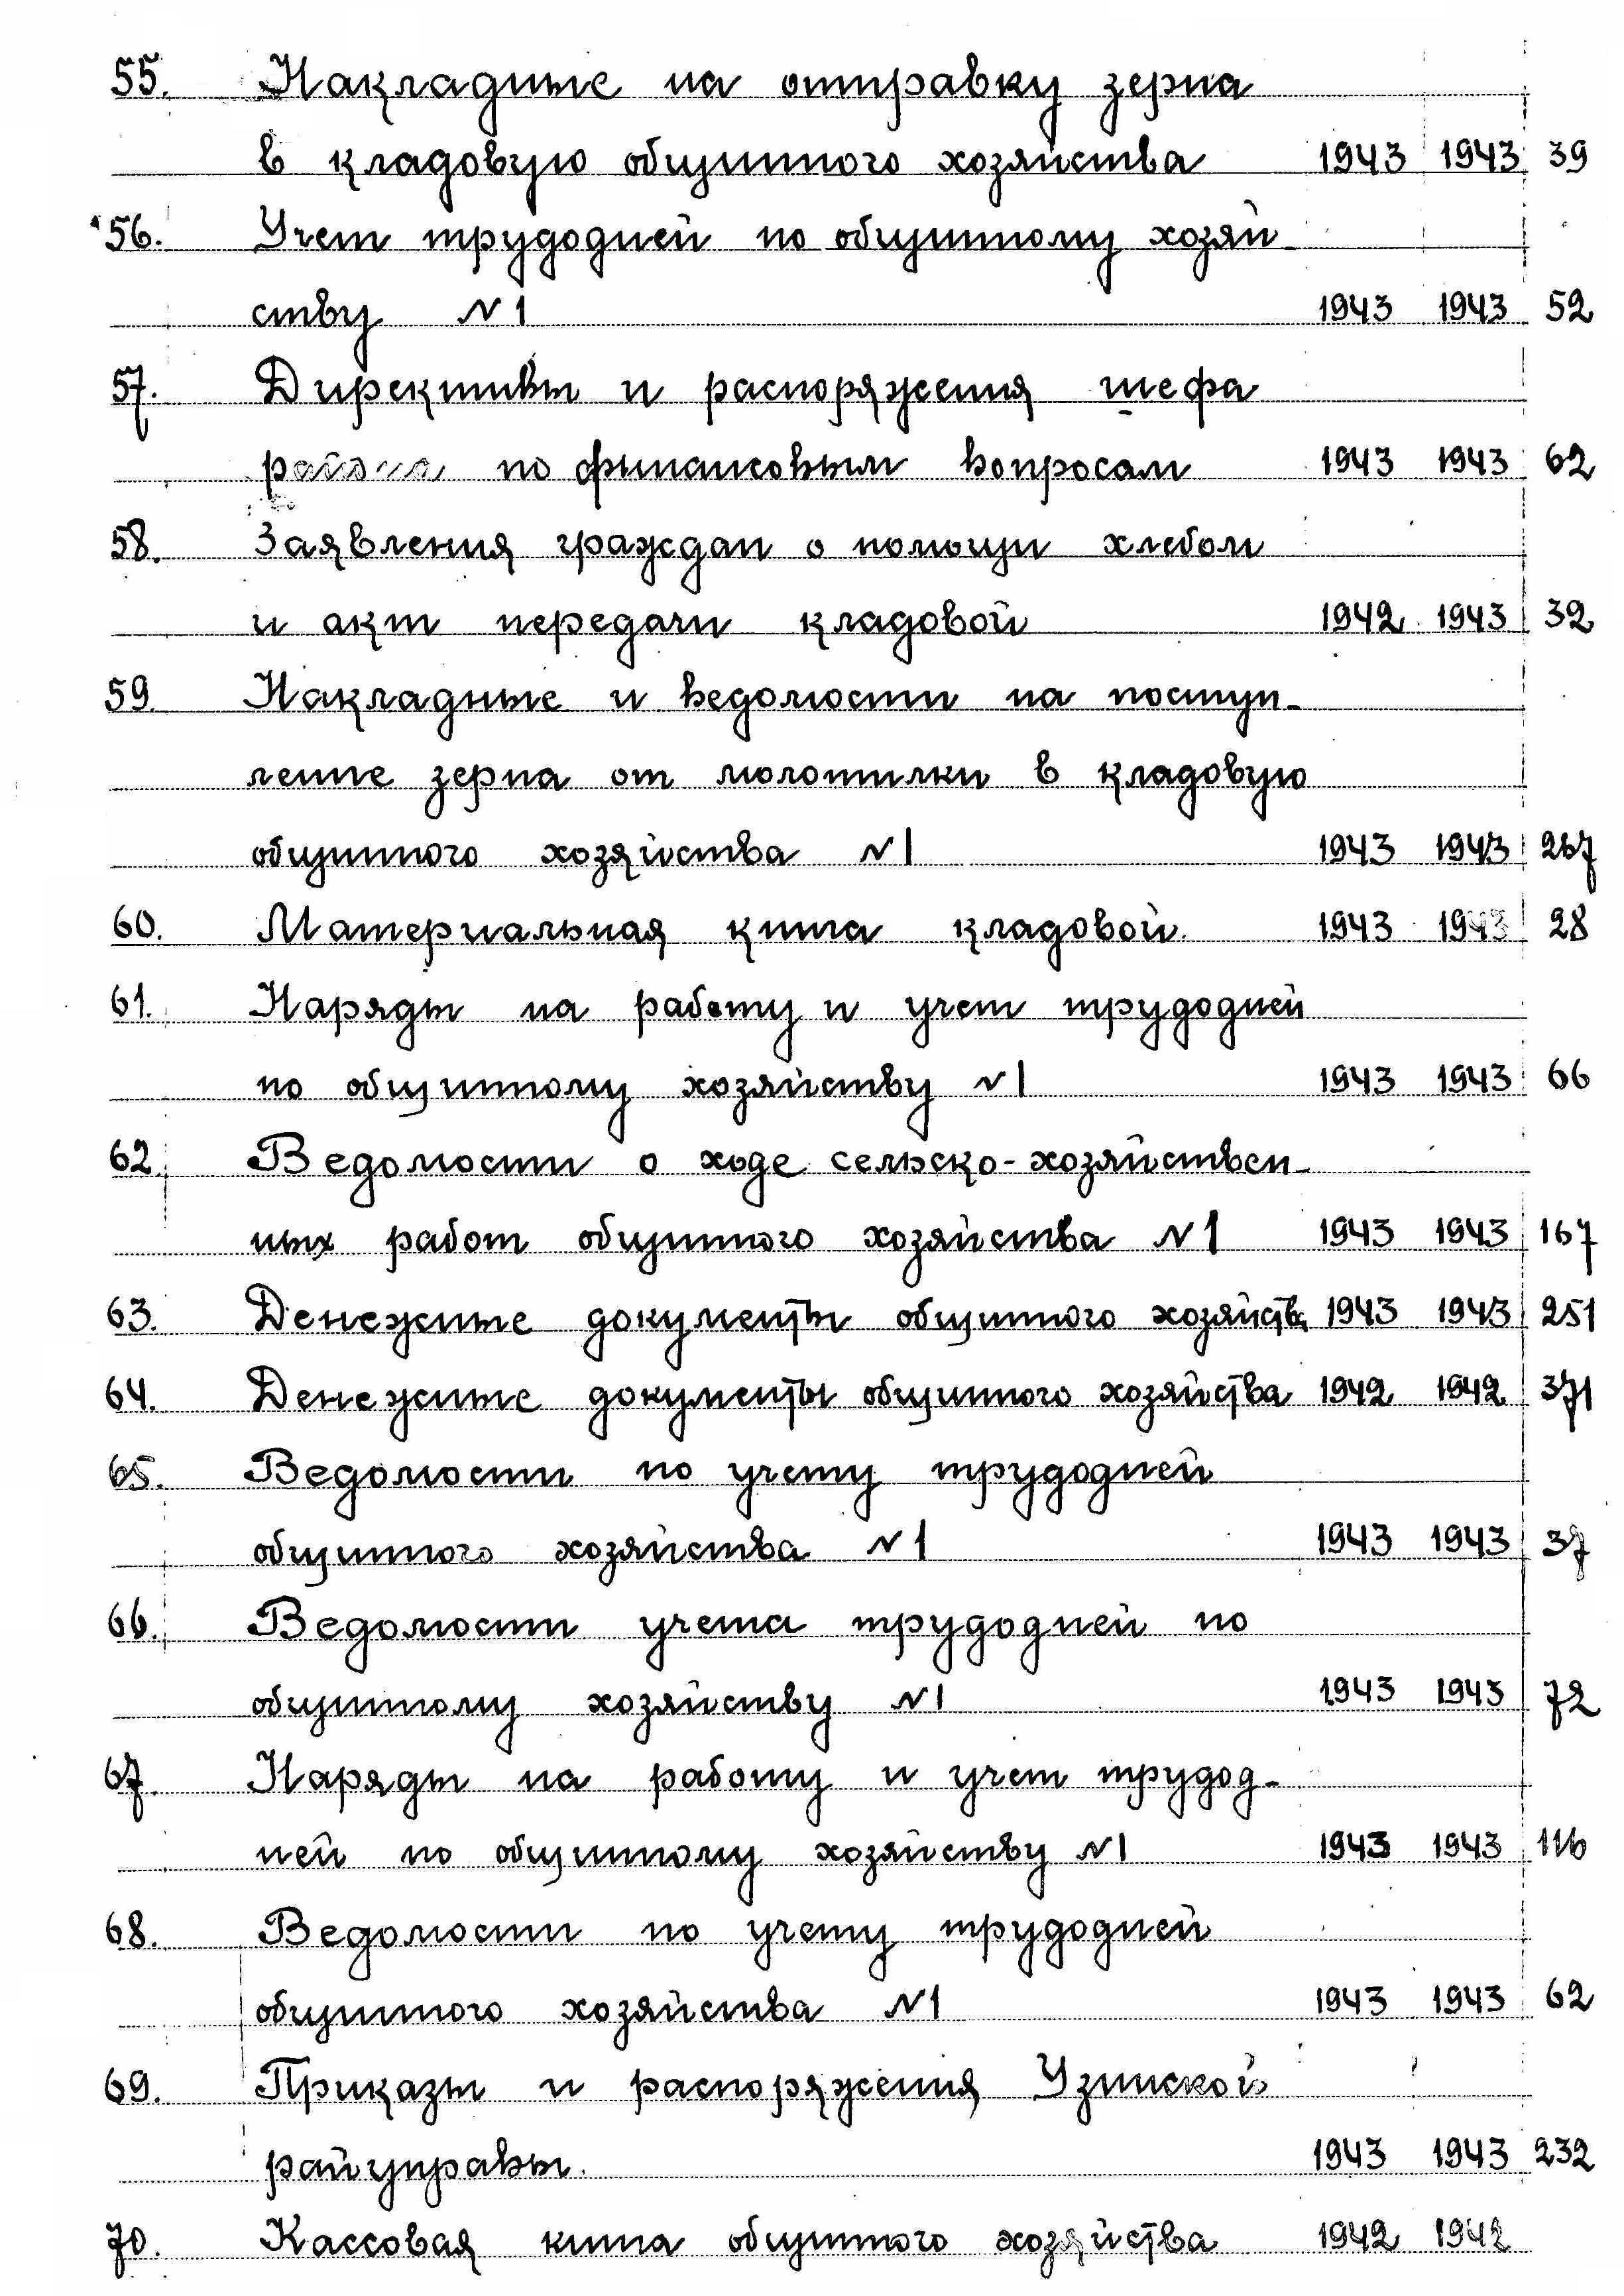 55. Накладные на отправку зерна
в кладовую общинного хозяйства 1943 1943 39
56. Учет трудодней по общинному хозяй-
ству N1 1943 1943 52
57. Директивы и распоряжения шефа
района по финансовым вопросам 1943 1943 62
58. Заявления граждан о помощи хлебом
и акт передачи кладовой 1942 1943 32
59. Накладные и ведомости на поступ-
ление зерна от молотилки в кладовую
общинного хозяйства N1 1943 1943 267
60. Материальная книга кладовой. 1943 1943 28
61. Наряды на работу и учет трудодней
по общинному хозяйству N1 1943 1943 66
62. Ведомости о ходе сельско-хозяйствен-
ных работ общинного хозяйства N1 1943 1943 167
63. Денежные документы общинного хозяйств 1943 1943 251
64. Денежные документы общинного хозяйства 1942 1942 371
65. Ведомости по учету трудодней
общинного хозяйства N1 1943 1943 37
66. Ведомости учета трудодней по
общинному хозяйству N1 1943 1943 72
67. Наряды на работу и учет трудод-
ней по общинному хозяйству N1 1943 1943 116
68. Ведомости по учету трудодней
общинного хозяйства N1 1943 1943 62
69. Приказы и распоряжения Узинской
райуправы. 1943 1943 232
70. Кассовая книга общинного хозяйства 1942 1942